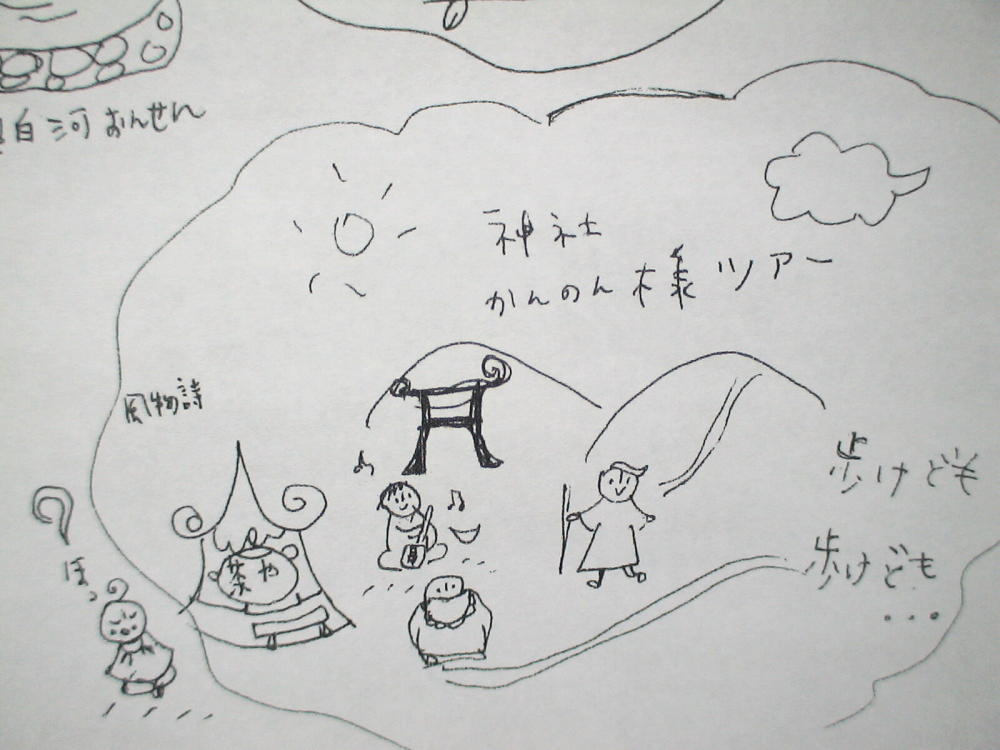 白河おんせん
神社
かんのん様ツアー
風物詩
茶や
ほっ
歩けども
歩けども
・・・